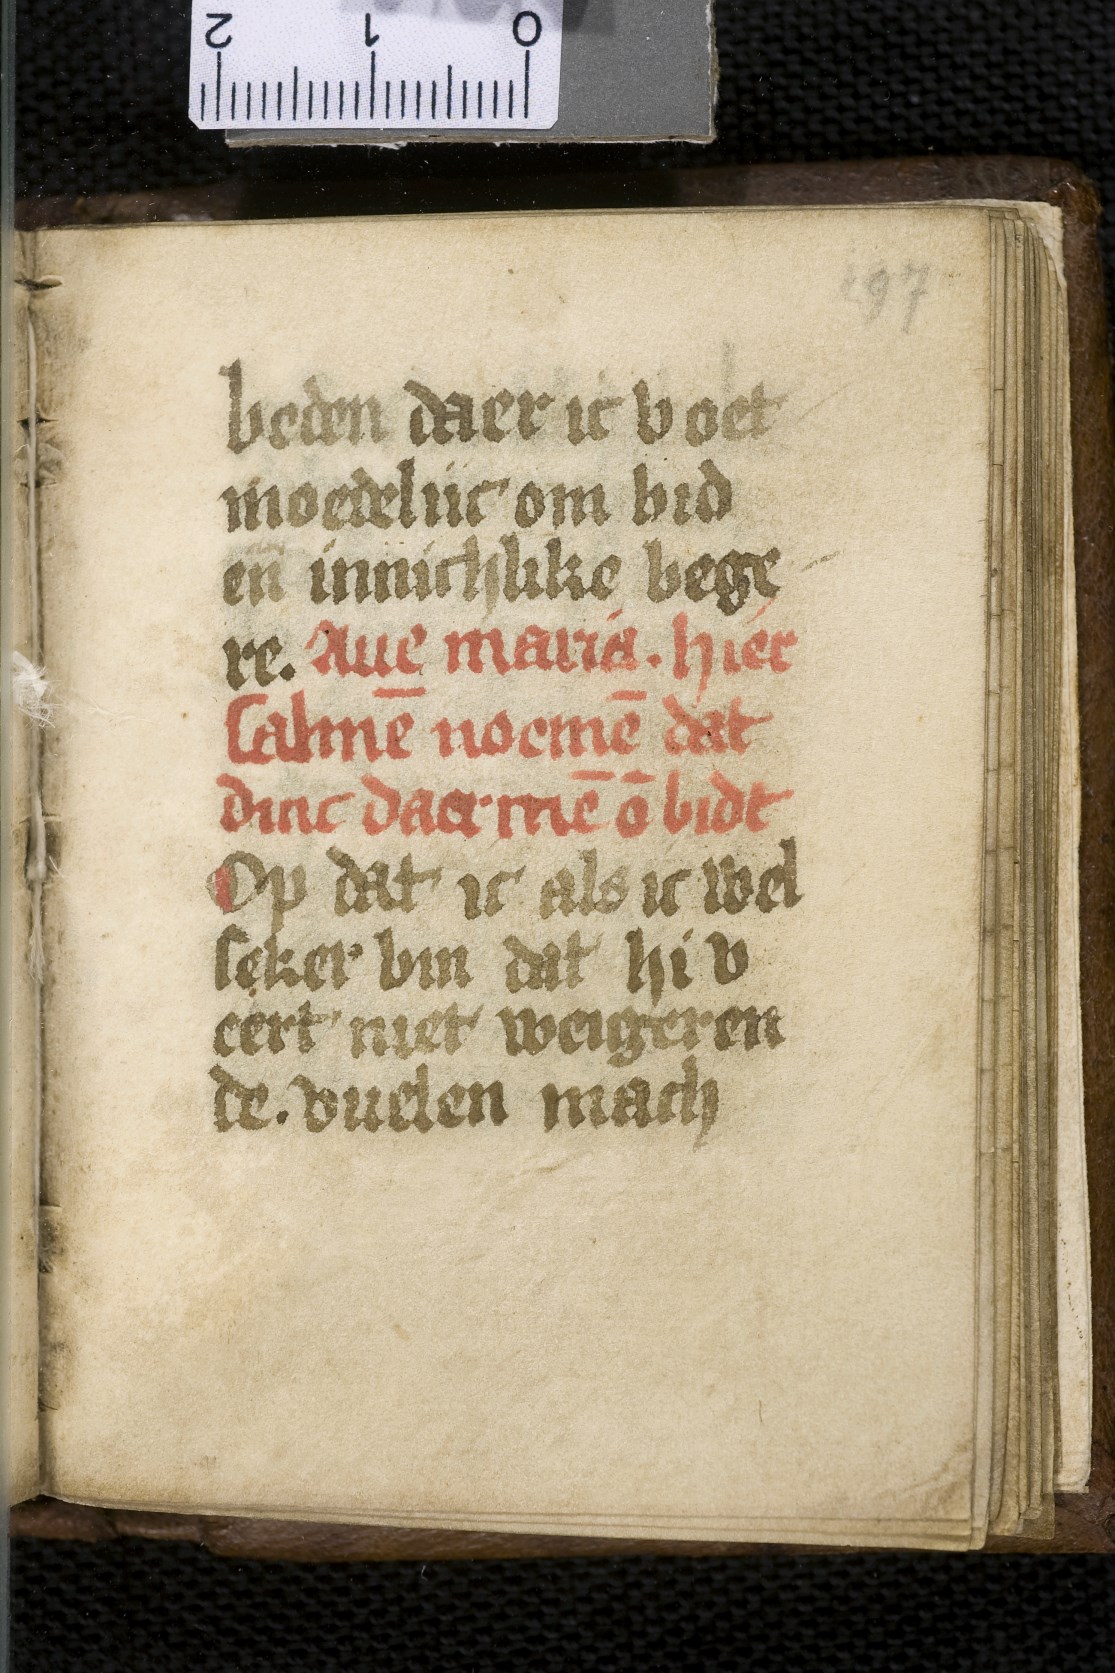 97
beden daer ic v oet
moedeliic om bid
en innichlike bege
re. Aue maria. hier
salmē nocmē dat
dinc daermē ō bidt
Op dat ic als ic wel
seker bin dat hi v
eert niet weigeren
de. vuelen mach
2 1 0